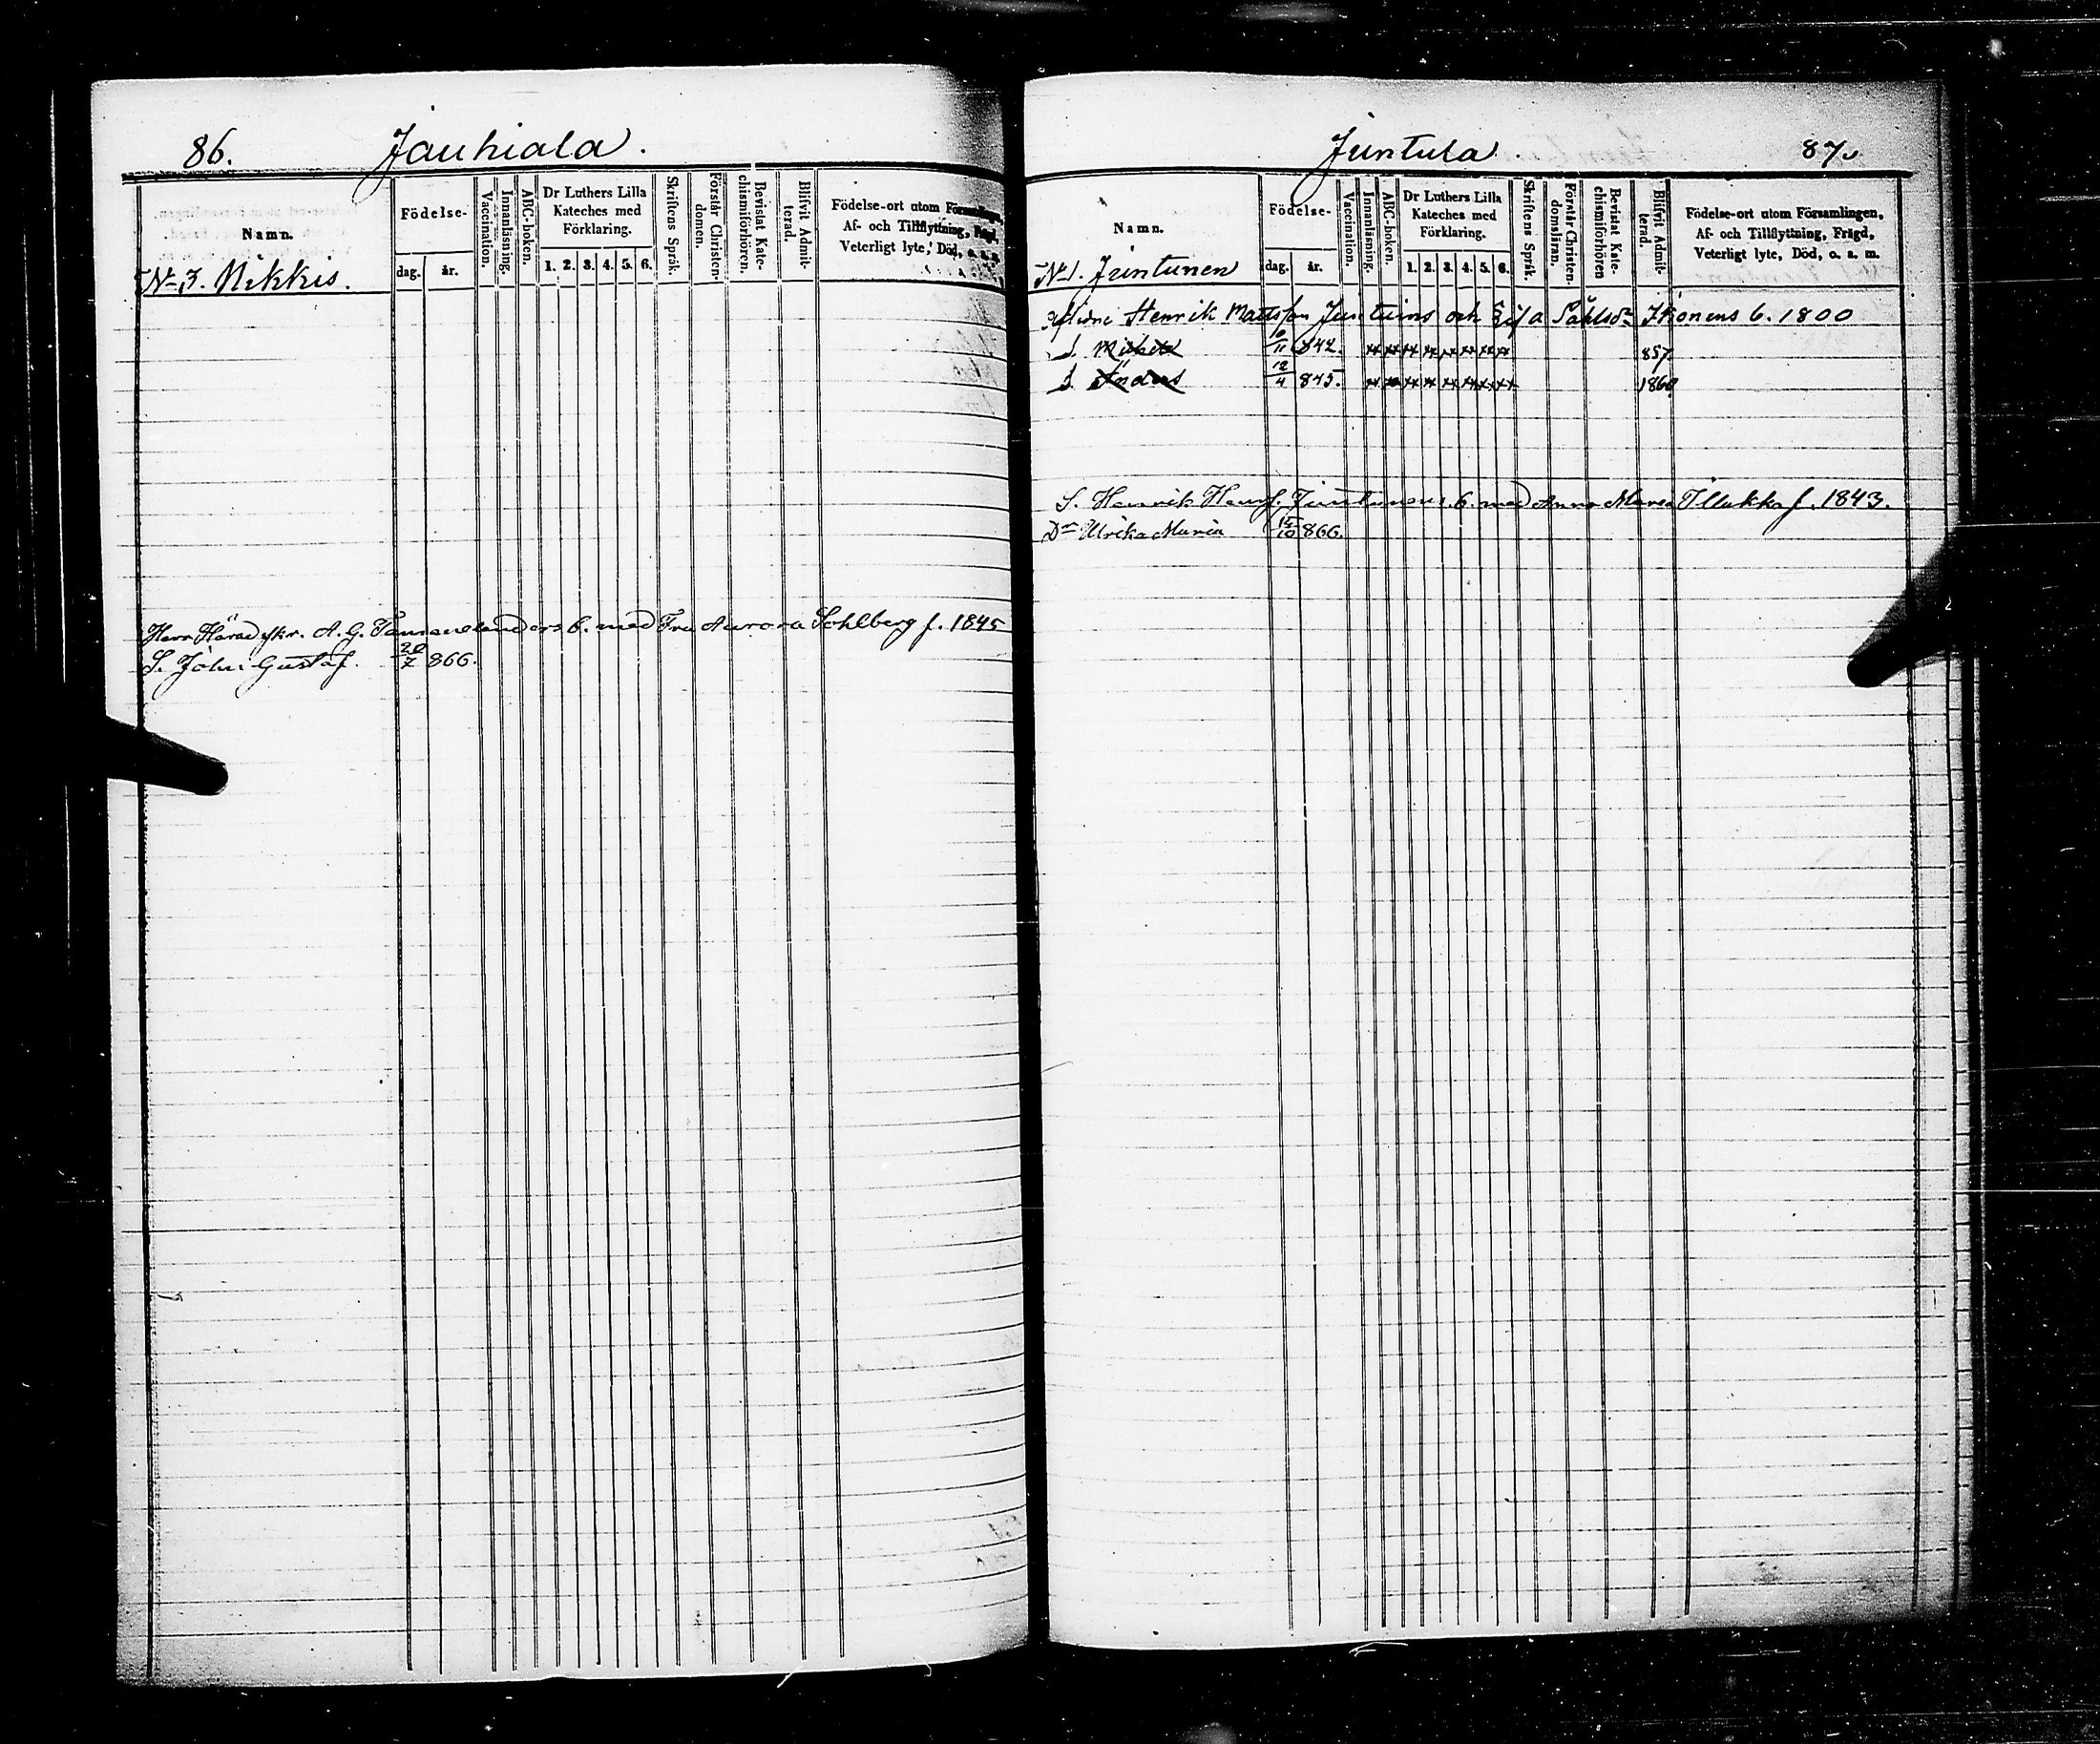 86.
Jauhiala.
Namn.
Födelse-
dag.
år.
Vaccination.
Innanläsning.
ABC-boken.
Dr Luthers Lilla
Kateches med
Förklaring.
1. 2. 3. 4. 5. 6.
Skriftens Språk.
Förstår Christen-
domen.
Bevistat Kate-
chismiförhören.
Blifvit Admit-
terad.
Födelse-ort utom Församlingen,
Af- och Tillflyttning, Frägd,
Veterligt lyte, Död, o. a. m.
No 3. Nikkis.
Herr Häradsskr. A. G. b. med Fru Aurora Sohlberg f. 1845
S. John Gustaf. 20/7 866.
Juntula.
87.
Namn.
Födelse-
dag.
år.
Vaccination.
Innanläsning.
ABC-boken.
Dr Luthers Lilla
Kateches med
Förklaring.
1. 2. 3. 4. 5. 6.
Skriftens Språk.
Förstår Christen-
domsläran.
Bevistat Kate-
chismiförhören
Blifvit Admit-
terad.
Födelse-ort utom Församlingen,
Af- och Tillflyttning, Frägd,
Veterligt lyte, Död, o. a. m.
No 1. Juntunen
Henrik Mattsson Juntuins och Påhlsdr Ikonens b. 1800
S. 10/11 842. 857.
S. Anders 12/4 845. 1860.
S. Henrik Henrs. Juntunens b. med Anna Maria Illukka f. 1843.
Dr Ulrika Maria 15/10 866.